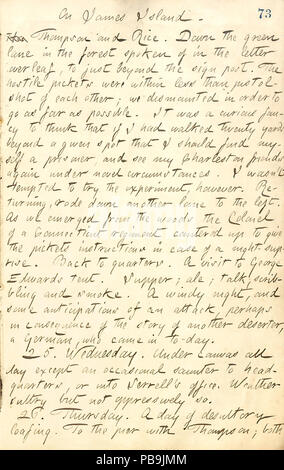 On James Island. 73
Thompson and Rice. Down the green
lane in the forest spoken of in the letter
overleaf, to just beyond the sign post. The
hostile pickets were within less than pistol-
shot of each other; we dismounted in order to
go as far as possible. It was a curious fan-
cy to think that if I had walked twenty yards
beyond a given spot that I should find my-
self a prisoner, and see my Charleston friends
again under novel circumstances. I wasn't
tempted to try the experiment, however. Re-
turning, rode down another lane to the left.
As we emerged from the woods the Colonel
of a Connecticut regiment cantered up to give
the pickets instructions in case of a night sur-
prise. Back to quarters. A visit to George
Edwards tent. Supper; ale; talk, scrib-
bling and smoke. A windy night, and
some anticipations of an attack, perhaps
in consequence of the story of another deserter,
a German, who came in to-day.
25. Wednesday. Under canvas all
day except an occasional saunter to head-
quarters, or into Serrell's office. Weather
sultry but not oppressively so.
26. Thursday. A day of desultory
loafing. To the pier with Thompson; both
alamy
Image ID: PB9JMM
www.alamy.com